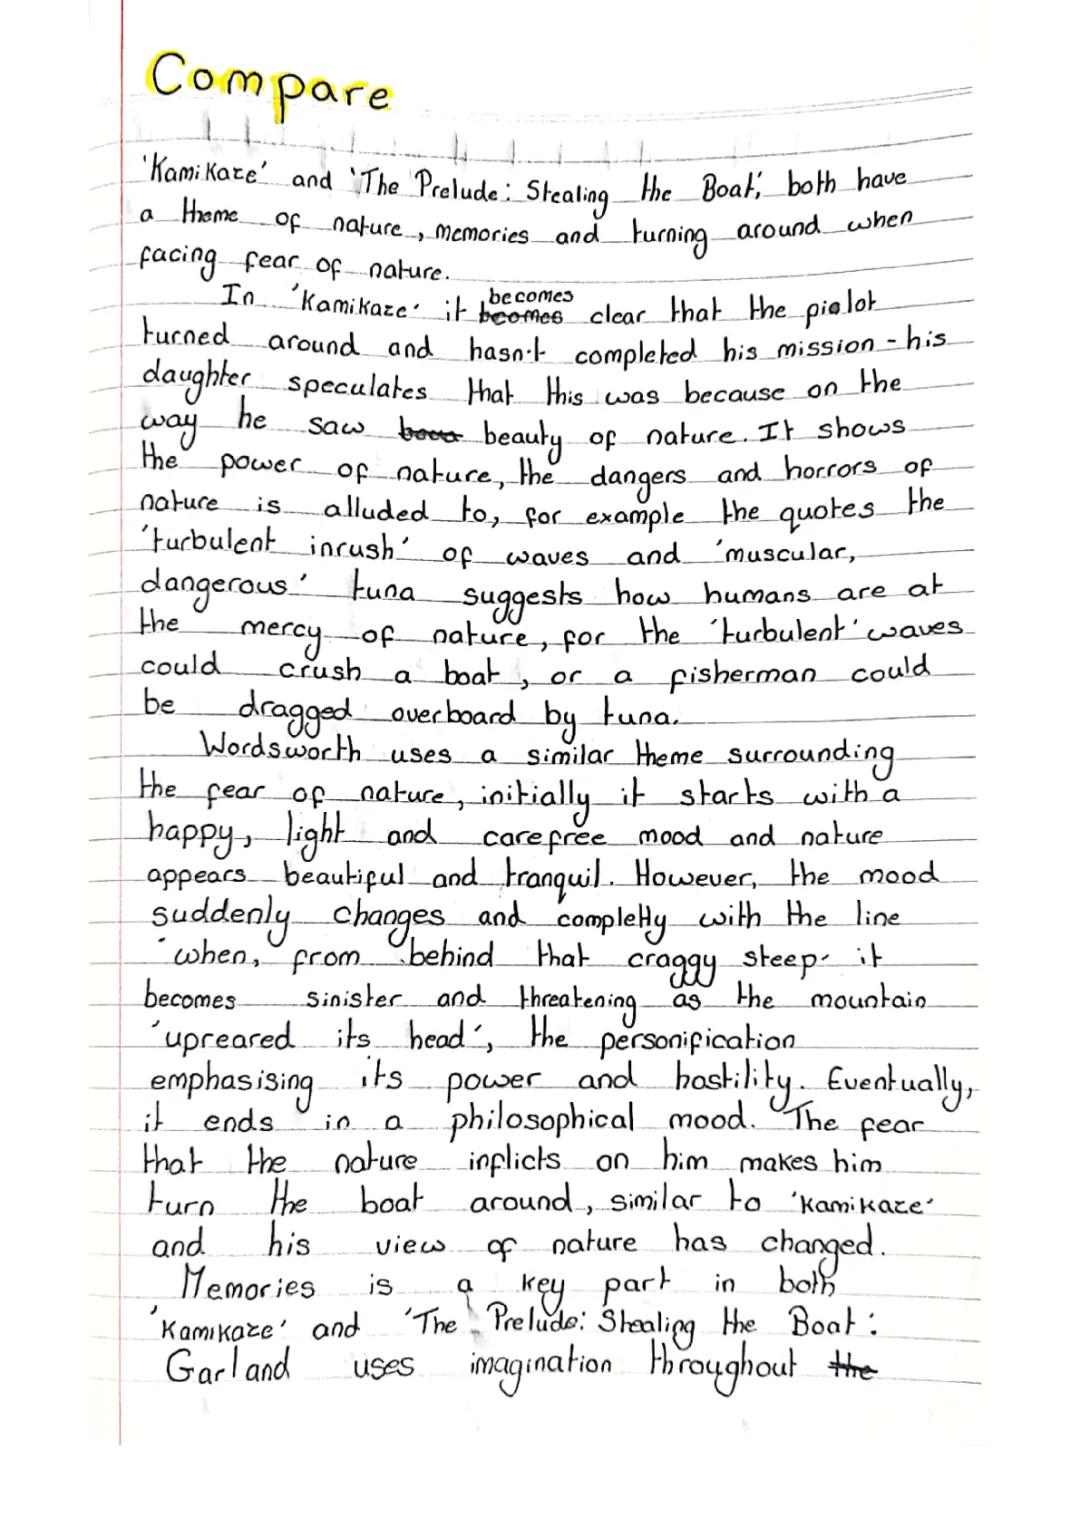 Compare
'Kamikaze' and 'The Prelude: Stealing the Boat', both have
a theme of nature, memories and turning around when
facing fear of nature.
In 'Kamikaze' it becomes beomes clear that the pielot
turned around and hasn't completed his mission - his
daughter speculates that this was because on the
way he saw beauty of nature. It shows
the power of nature, the dangers and horrors of
nature is alluded to, for example the quotes the
'turbulent inrush' of waves and 'muscular,
dangerous' tuna suggests how humans are at
the mercy of nature, for the 'turbulent' waves
could crush a boat, or a fisherman could
be dragged overboard by tuna.
Wordsworth uses a similar theme surrounding
the fear of nature, initially it starts with a
happy, light and carefree mood and nature
appears beautiful and tranquil. However, the mood
suddenly changes and completly with the line
'when, from behind that craggy steep' it
becomes sinister and threatening as the mountain
'upreared its head', the personification
emphasising its power and hostility. Eventually,
it ends in a philosophical mood. The fear
that the nature inflicts on him makes him
turn the boat around, similar to 'Kamikaze'
and his view of nature has changed.
Memories is a key part in both
'Kamikaze' and 'The Prelude: Stealing the Boat':
Garland uses imagination throughout the